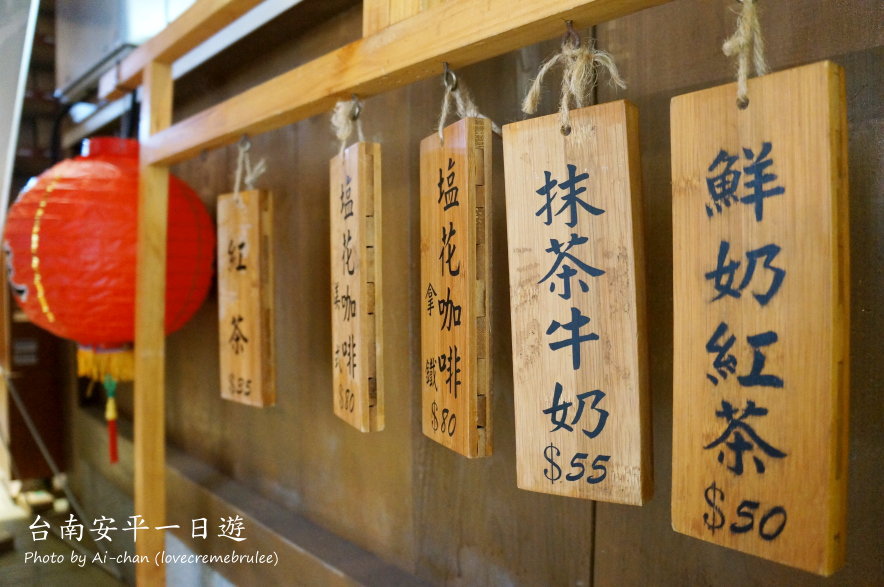 紅茶
$35
塩花咖啡
美式
$80
塩花咖啡
拿鐵
$80
抹茶牛奶
$55
鮮奶紅茶
$50
台南安平一日遊
Photo by Ai-chan (lovecremebrulee)